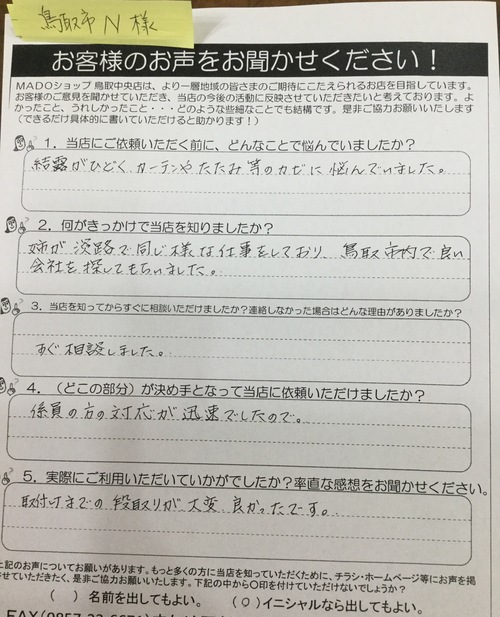 鳥取市 N 様
お客様のお声をお聞かせください！
MADOショップ 鳥取中央店は、より一層地域の皆さまのご期待にこたえられるお店を目指しています。
お客様のご意見を聞かせていただき、当店の今後の活動に反映させていただきたいと考えております。よ
かったこと、うれしかったこと・・・どのような些細なことでも結構です。是非ご協力お願いいたします
（できるだけ具体的に書いていただけると助かります！）
1．当店にご依頼いただく前に、どんなことで悩んでいましたか？
結露がひどく、カーテンやたたみ等のカビに悩んでいました。
2．何がきっかけで当店を知りましたか？
姉が淡路で同じ様な仕事をしており、鳥取市内で良い
会社を探してもらいました。
3．当店を知ってからすぐに相談いただけましたか？連絡しなかった場合はどんな理由がありましたか？
すぐ相談しました。
4．（どこの部分）が決め手となって当店に依頼いただけましたか？
係員の方の対応が迅速でしたので。
5．実際にご利用いただいていかがでしたか？率直な感想をお聞かせください。
取付けまでの段取りが大変良かったです。
上記のお声についてお願いがあります。もっと多くの方に当店を知っていただくために、チラシ・ホームページ等にお声を掲
せていただきたく、是非ご協力お願いいたします。下記の中から〇印を付けていただけないでしょうか？
（ ）名前を出してもよい。 （○）イニシャルなら出してもよい。